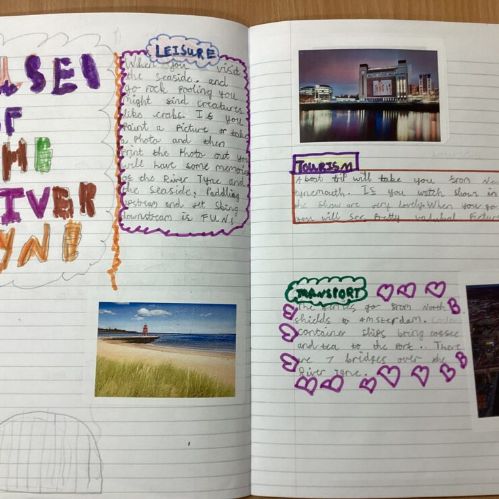 USES
OF
THE
RIVER
TYNE
LEISURE
When you visit
the seaside. and
go rock pooling you
might find creatures
like crabs. If you
Paint a Picture or take
a Photo and then
print the Photo out you
will have some memories
of the River Tyne and
the Seaside. Paddling
upstream and jet skiing
downstream is FUN!
TOURISM
A boat trip will take you from
Tynemouth. If you watch shows in
the show are very lovely. When you go
you will see Pretty
TRANSPORT
The ferries go from North
shields to Amsterdam.
container ships bring coffee
and tea to the Port. There
are 7 bridges over the
River Tyne.